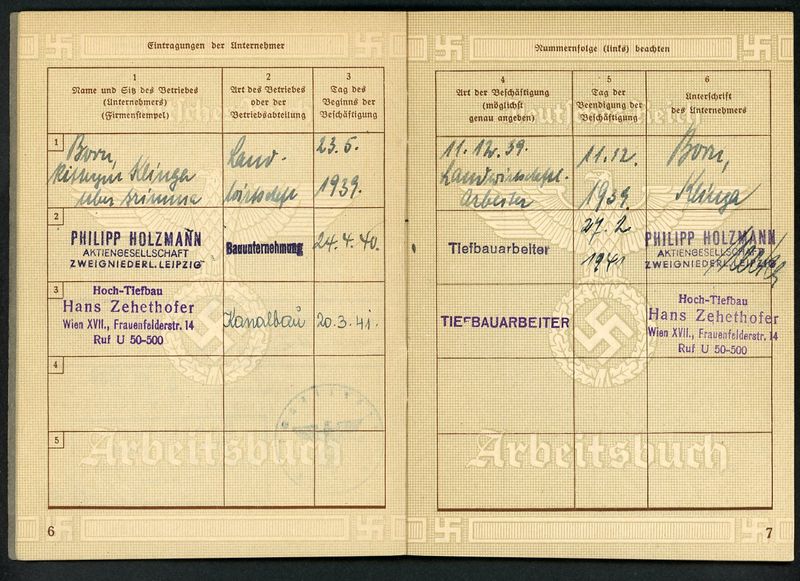 Eintragungen der Unternehmer
1
Name und Sitz des Betriebes
(Unternehmers)
(Firmenstempel)
2
Art des Betriebes
oder der
Betriebsabteilung
3
Tag des
Beginns der
Beschäftigung
1
Born,
Klinga
über Grimma
Land-
wirtschaft
23.5.
1939.
2
PHILIPP HOLZMANN
AKTIENGESELLSCHAFT
ZWEIGNIEDERL. LEIPZIG
Bauunternehmung
24.4.40.
3
Hoch-Tiefbau
Hans Zehethofer
Wien XVII., Frauenfelderstr. 14
Ruf U 50-500
Kanalbau
20.3.41.
4
5
Arbeitsbuch
6
Nummernfolge (links) beachten
4
Art der Beschäftigung
(möglichst
genau angeben)
5
Tag der
Beendigung der
Beschäftigung
6
Unterschrift
des Unternehmers
Deutsches Reich
11.12.39.
Landwirtschaftl.
Arbeiter
11.12.
1939.
Born,
Klinga
Tiefbauarbeiter
27.2
1941
PHILIPP HOLZMANN
AKTIENGESELLSCHAFT
ZWEIGNIEDERL. LEIPZIG
TIEFBAUARBEITER
Hoch-Tiefbau
Hans Zehethofer
Wien XVII., Frauenfelderstr. 14
Ruf U 50-500
Arbeitsbuch
7